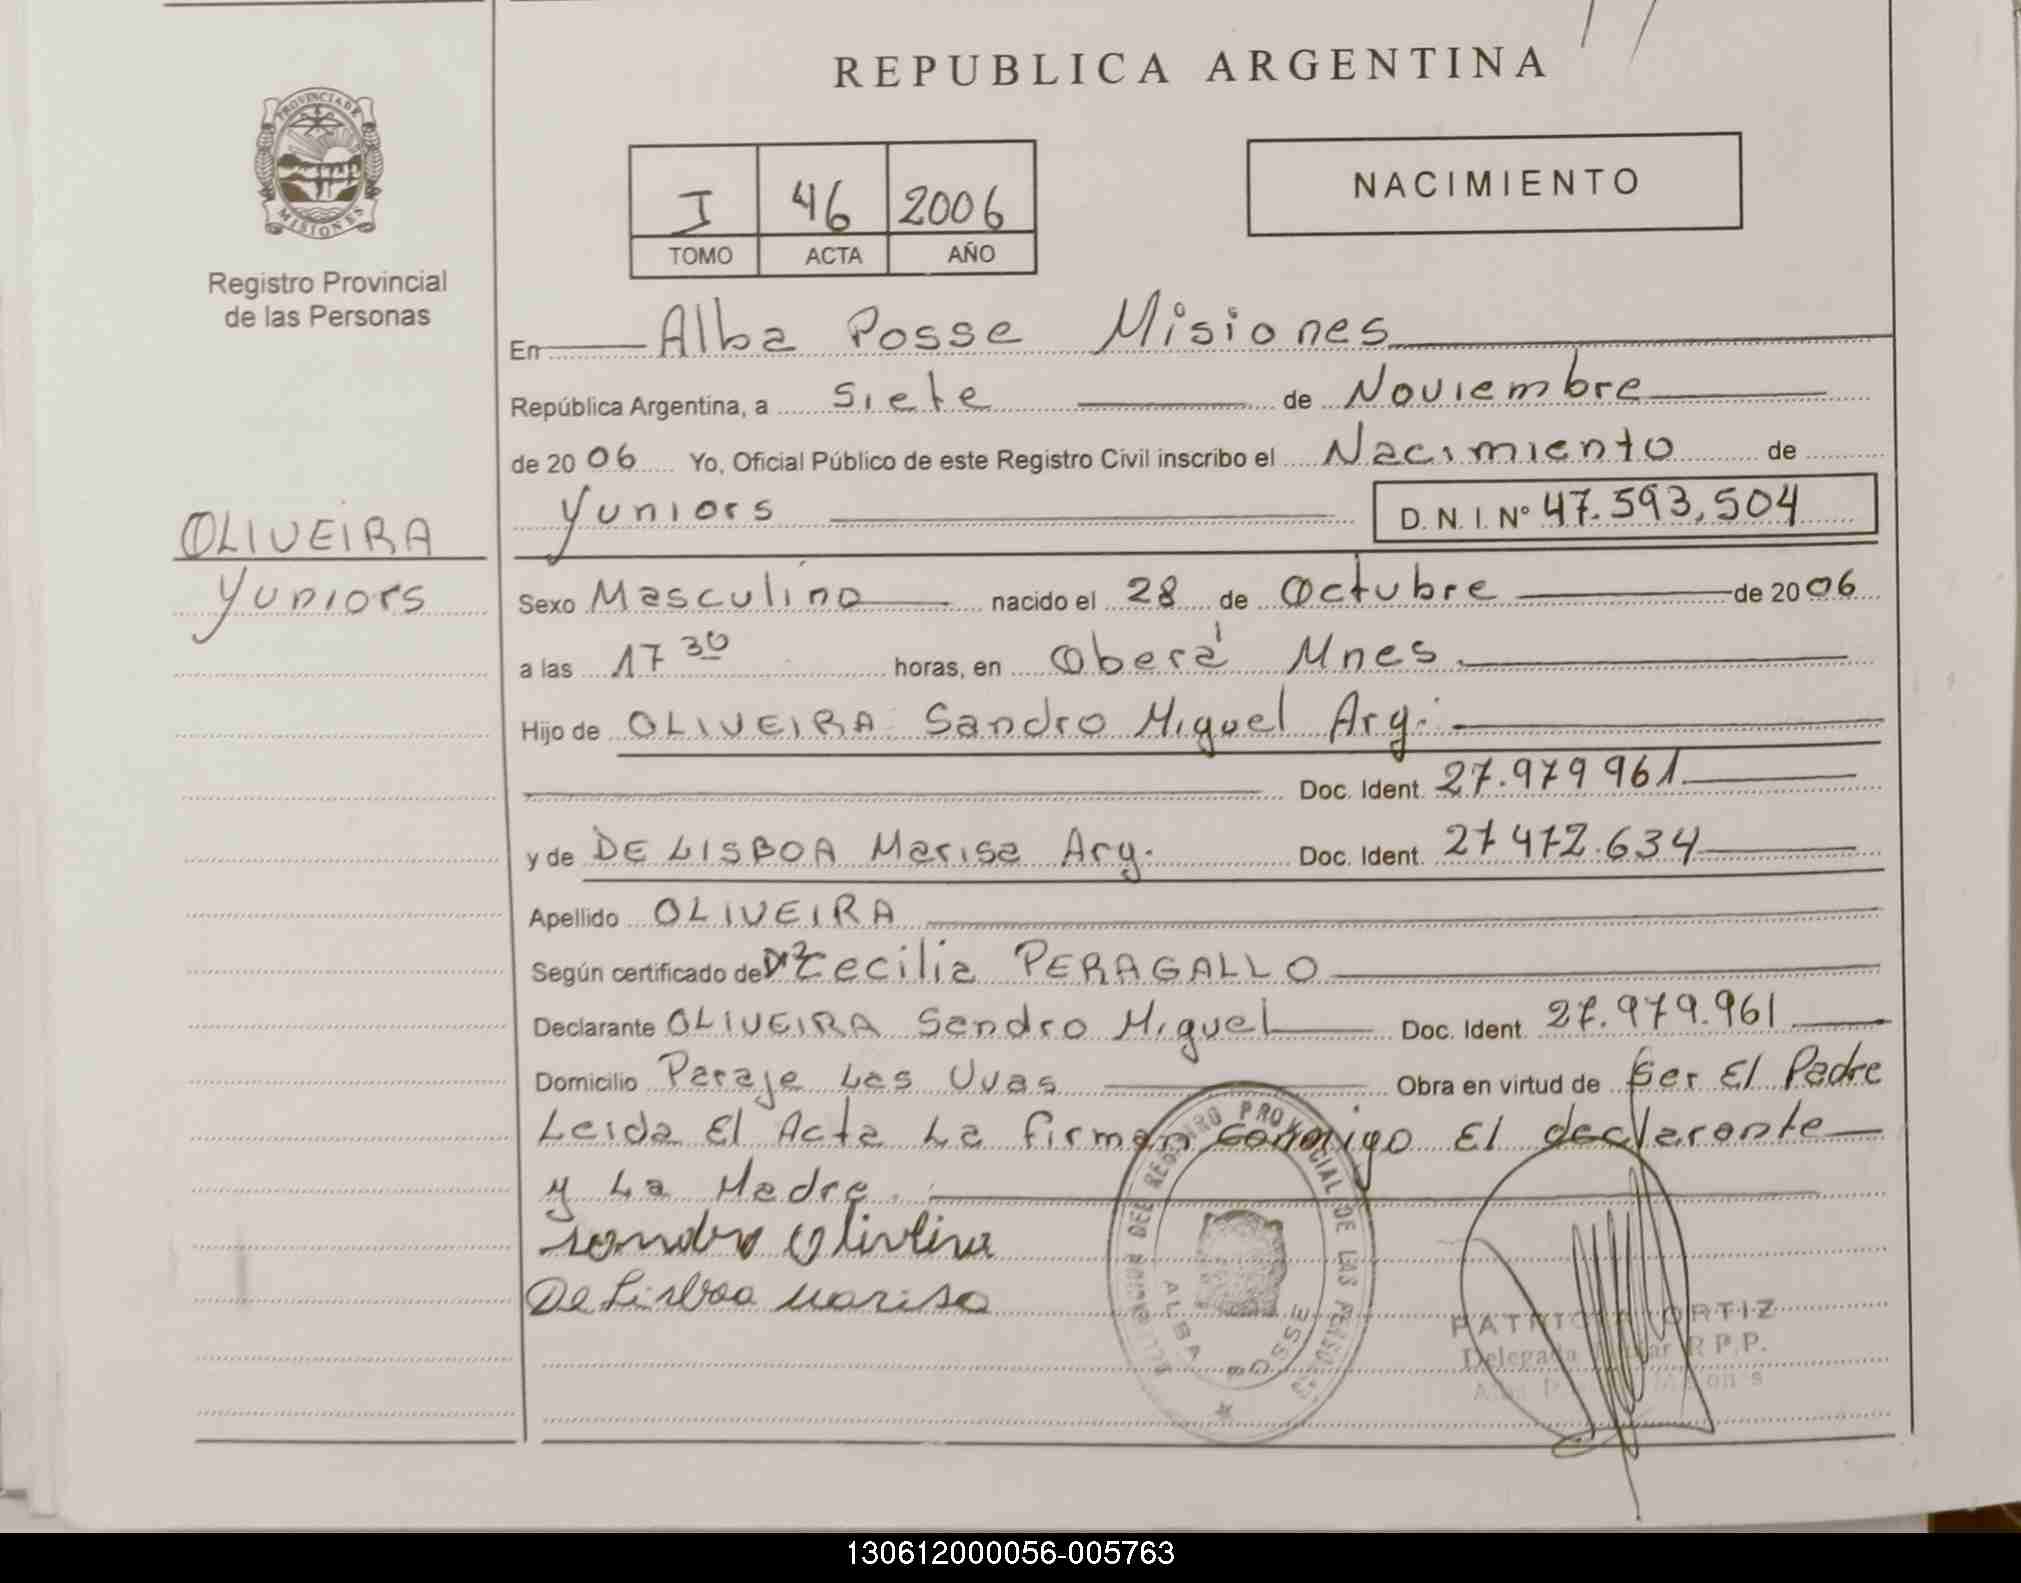 REPUBLICA ARGENTINA
PROVINCIA DE
MISIONES
Registro Provincial
de las Personas
I 46 2006
TOMO ACTA AÑO
NACIMIENTO
En Alba Posse Misiones
República Argentina, a siete de Noviembre
de 2006 Yo, Oficial Público de este Registro Civil inscribo el Nacimiento de
Yuniors D. N. I. Nº 47.593,504
OLIVEIRA
Yuniors
Sexo Masculino nacido el 28 de Octubre de 2006
a las 17 30 horas, en Oberá Mnes
Hijo de OLIVEIRA Sandro Miguel Arg.
Doc. Ident. 27.979 961
y de DE LISBOA Marisa Arg. Doc. Ident. 27 472.634
Apellido OLIVEIRA
Según certificado de Cecilia PERAGALLO
Declarante OLIVEIRA Sandro Miguel Doc. Ident. 27.979.961
Domicilio Paraje Las Uvas Obra en virtud de Ser El Padre
Leida El Acta La firman conmigo El declarante
y La Madre.
Sandro Oliveira
De Lisboa Marisa
REGISTRO PROVINCIAL DE LAS PERSONAS
ALBA POSSE
PATRICIA ORTIZ
Delegada R.P.P.
130612000056-005763